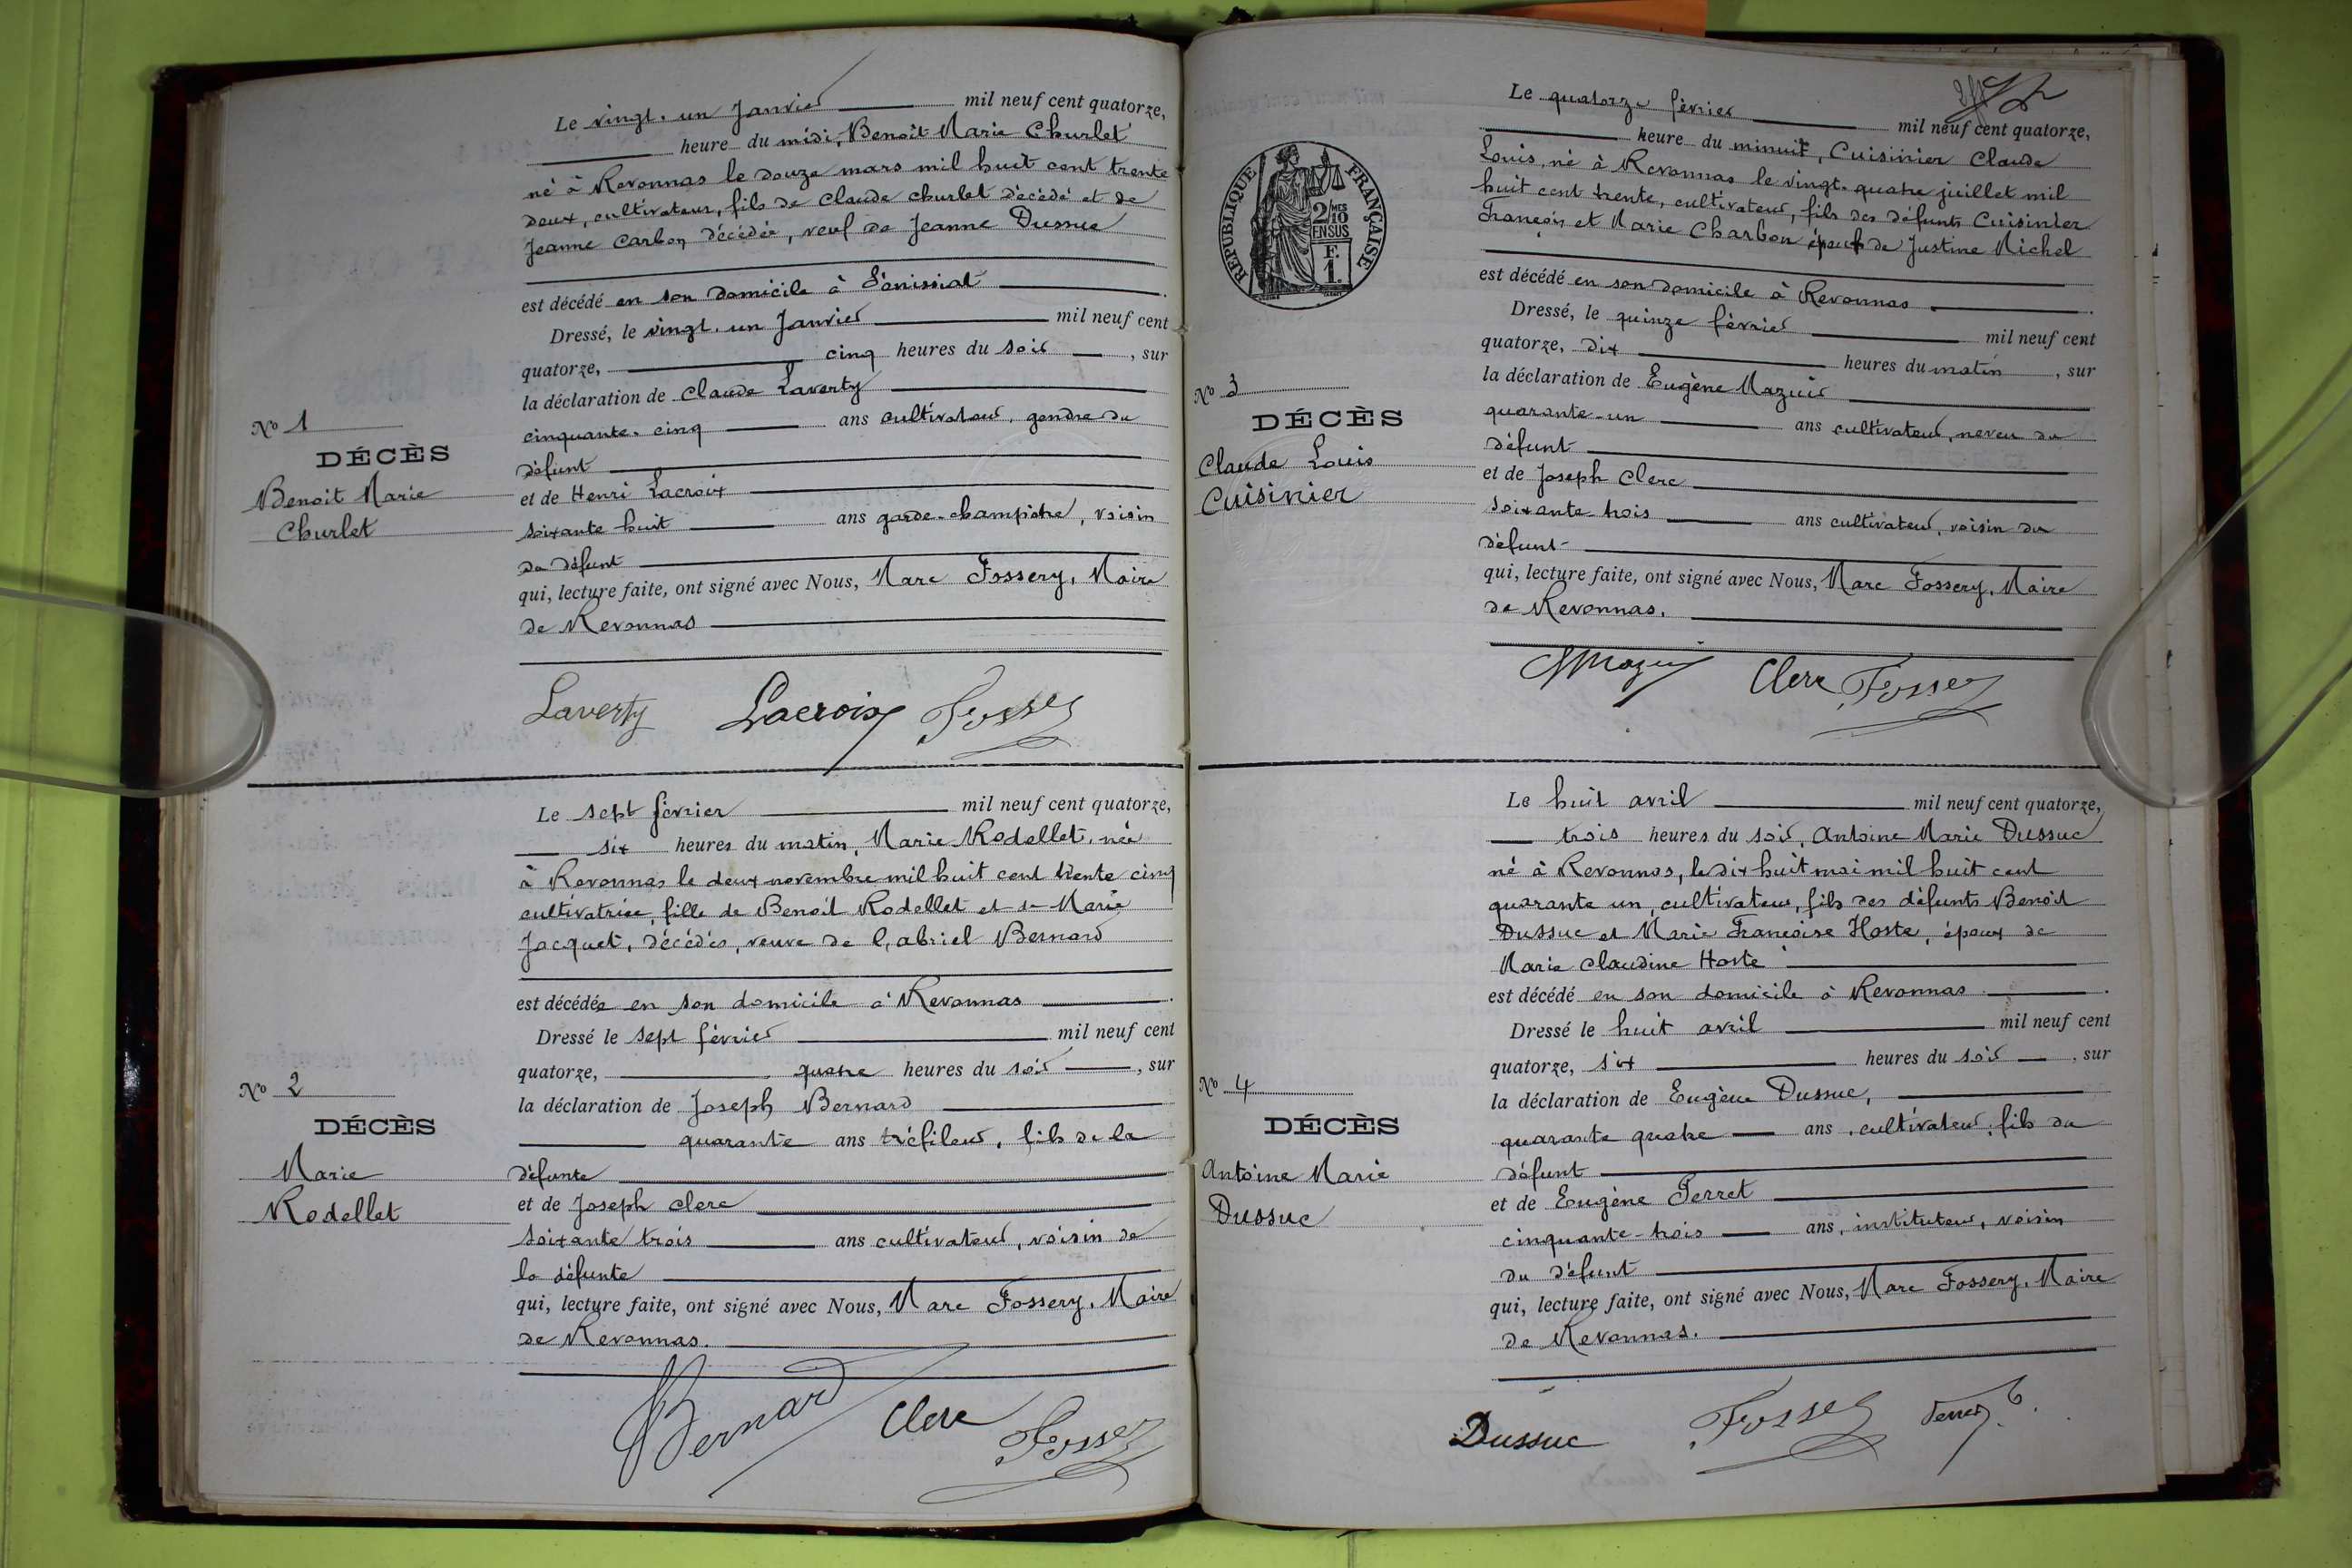 Le vingt-un Janvier mil neuf cent quatorze,
heure du midi, Benoît Marie Churlet
né à Revonnas le douze mars mil huit cent trente
deux, cultivateur, fils de Claude Churlet décédé et de
Jeanne Carbon décédée, veuf de Jeanne Dussuc
est décédé en son domicile à Sénissiat.
Dressé, le vingt-un Janvier mil neuf cent
quatorze, cinq heures du soir, sur
la déclaration de Claude Laverty
cinquante-cinq ans cultivateur, gendre du
défunt
et de Henri Lacroix
soixante huit ans garde-champêtre, voisin
du défunt
qui, lecture faite, ont signé avec Nous, Marc Fossery, Maire
de Revonnas
N° 1
DÉCÈS
Benoit Marie
Churlet
Laverty Lacroix Fossery
Le sept février mil neuf cent quatorze,
six heures du matin, Marie Rodellet, née
à Revonnas le deux novembre mil huit cent trente cinq
cultivatrice, fille de Benoît Rodellet et de Marie
Jacquet, décédés, veuve de Gabriel Bernard
est décédée en son domicile à Revonnas.
Dressé le sept février mil neuf cent
quatorze, quatre heures du soir, sur
la déclaration de Joseph Bernard
quarante ans tréfileur, fils de la
défunte
et de Joseph Clerc
soixante trois ans cultivateur, voisin de
la défunte
qui, lecture faite, ont signé avec Nous, Marc Fossery, Maire
de Revonnas.
N° 2
DÉCÈS
Marie
Rodellet
Bernard Clerc Fossery
Le quatorze février mil neuf cent quatorze,
heure du minuit, Cuisinier Claude
Louis, né à Revonnas le vingt-quatre juillet mil
huit cent trente, cultivateur, fils des défunts Cuisinier
François et Marie Charbon époux de Justine Michel
est décédé en son domicile à Revonnas.
Dressé, le quinze février mil neuf cent
quatorze, dix heures du matin, sur
la déclaration de Eugène Mazuir
quarante-un ans cultivateur, neveu du
défunt
et de Joseph Clerc
soixante-trois ans cultivateur, voisin du
défunt
qui, lecture faite, ont signé avec Nous, Marc Fossery, Maire
de Revonnas.
RÉPUBLIQUE FRANÇAISE
2/10
MES
EN SUS
F.
1.
N° 3
DÉCÈS
Claude Louis
Cuisinier
Mazuir Clerc Fossery
Le huit avril mil neuf cent quatorze,
trois heures du soir, Antoine Marie Dussuc
né à Revonnas, le dix huit mai mil huit cent
quarante un, cultivateur, fils des défunts Benoît
Dussuc et Marie Françoise Hoste, époux de
Marie Claudine Hoste
est décédé en son domicile à Revonnas.
Dressé le huit avril mil neuf cent
quatorze, six heures du soir, sur
la déclaration de Eugène Dussuc,
quarante quatre ans, cultivateur, fils du
défunt
et de Eugène Perret
cinquante-trois ans, instituteur, voisin
du défunt
qui, lecture faite, ont signé avec Nous, Marc Fossery, Maire
de Revonnas.
N° 4
DÉCÈS
Antoine Marie
Dussuc
Dussuc Fossery Perret